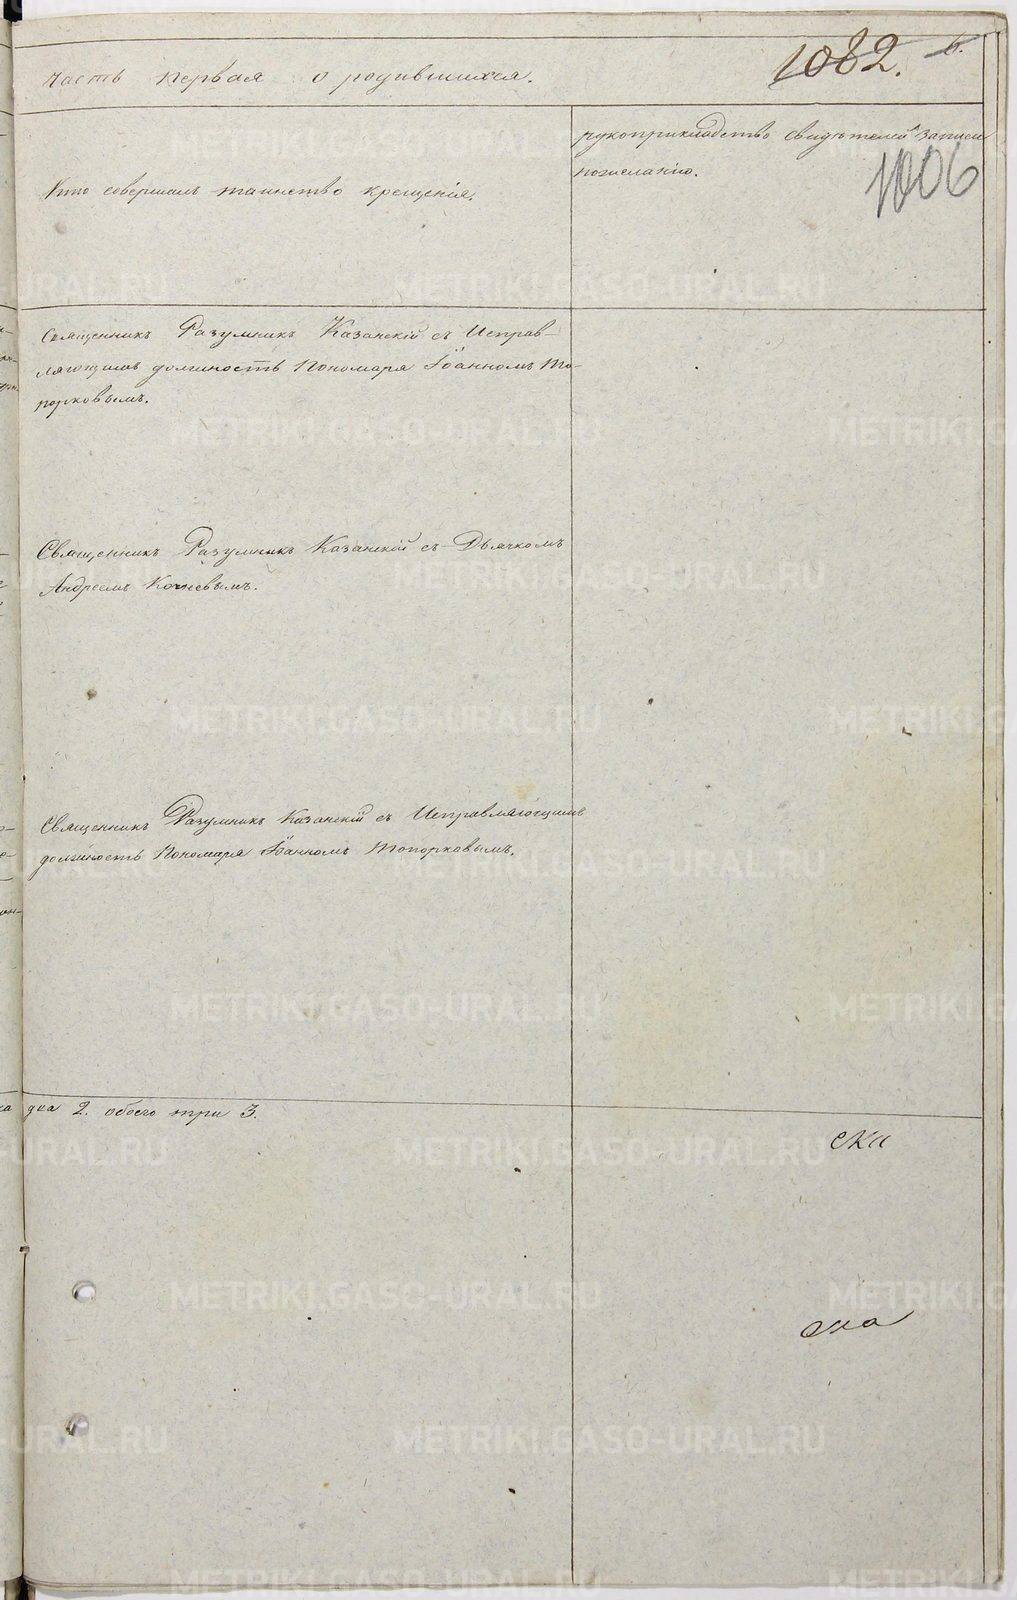 часть первая о родившихся.
1082. 6.
Кто совершалъ таинство крещенія.
рукоприкладство свидѣтелей записи
пожеланію.
1006
Священникъ Разумникъ Казанскій съ Исправ-
ляющимъ должность Пономаря Іоанномъ То-
порковымъ.
Священникъ Разумникъ Казанскій съ Дьячкомъ
Андреемъ Кочневымъ.
Священникъ Разумникъ Казанскій съ Исправляющимъ
должность Пономаря Іоанномъ Топорковымъ.
два 2. обоего три 3.
METRIKI.GASO-URAL.RU